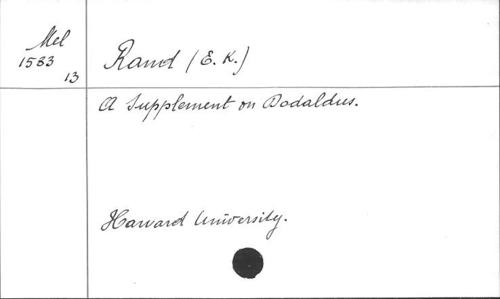 Mel
1583
13
Rand (E. K.)
A Supplement on Dodaldus.
Harvard University.